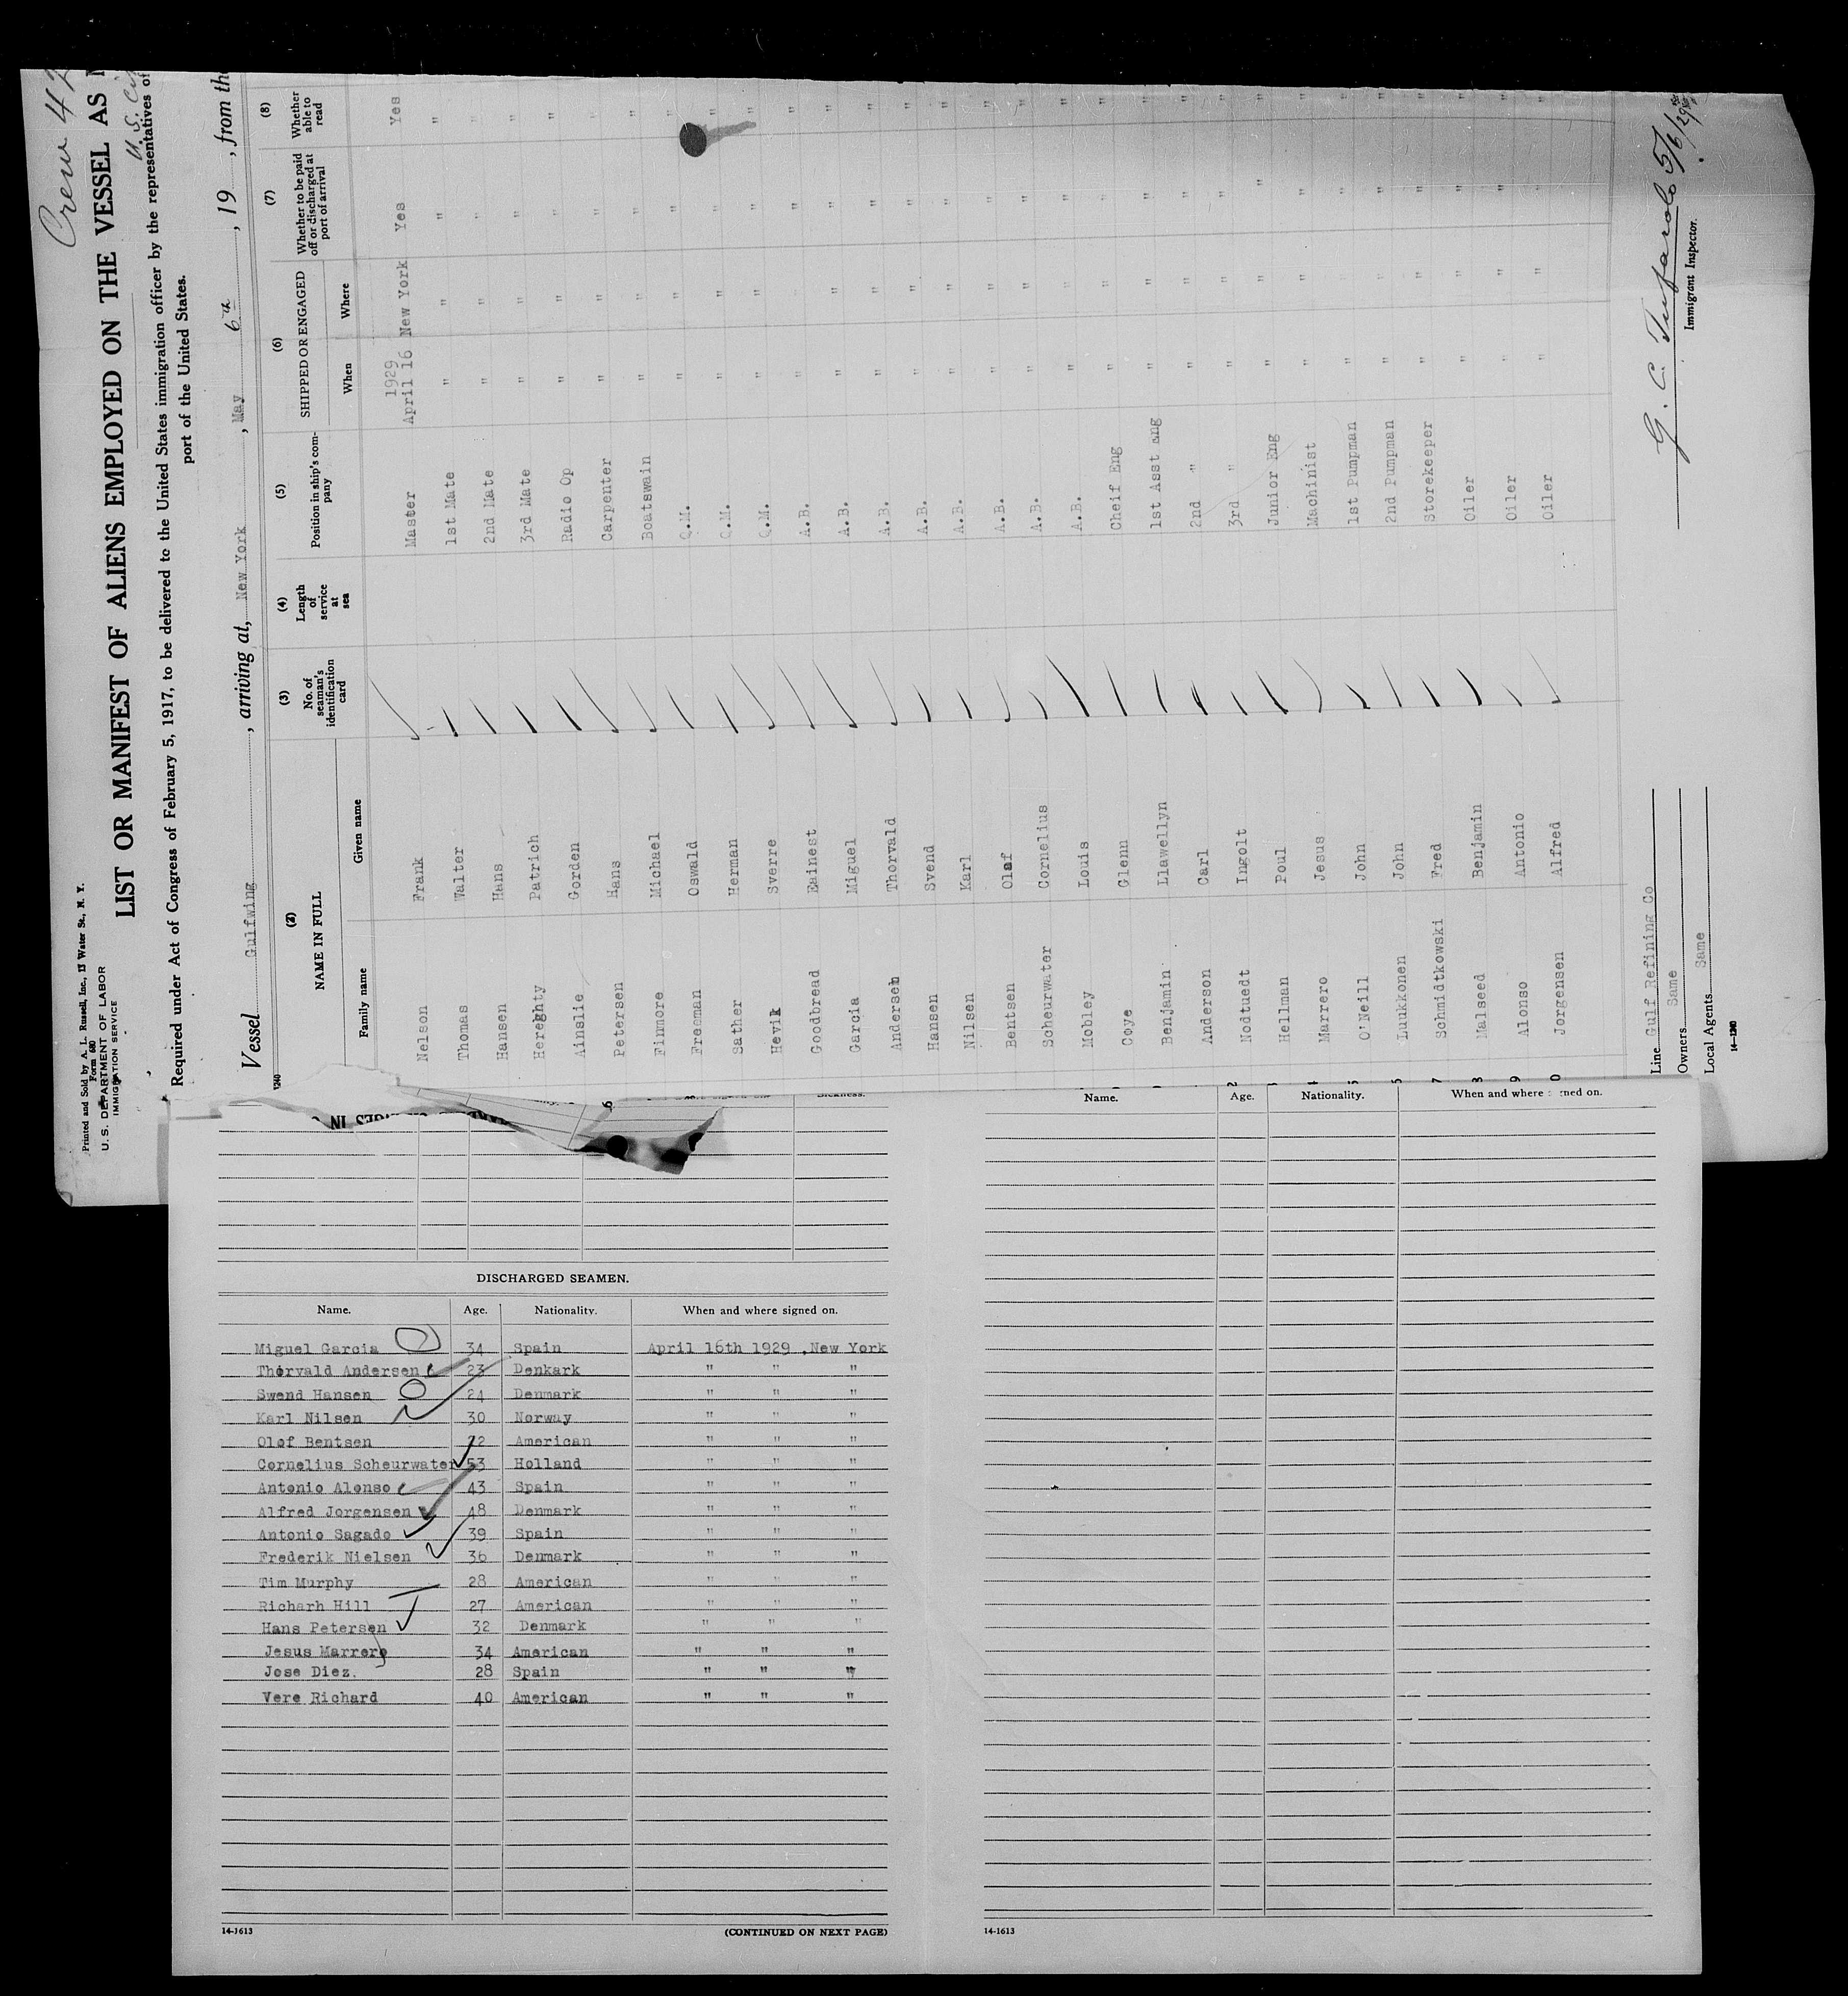 Crew 42
Printed and Sold by A. L. Russell, Inc., 13 Water St., N. Y.
Form 680
U. S. DEPARTMENT OF LABOR
IMMIGRATION SERVICE
LIST OR MANIFEST OF ALIENS EMPLOYED ON THE VESSEL AS
U.S. Cit
Required under Act of Congress of February 5, 1917, to be delivered to the United States immigration officer by the representatives of
port of the United States.
Vessel Gulfwing, arriving at, New York, May 6th, 19, from the
(2) NAME IN FULL (3) No. of seaman's identification card (4) Length of service at sea (5) Position in ship's company (6) SHIPPED OR ENGAGED (7) Whether to be paid off or discharged at port of arrival (8) Whether able to read
Family name Given name When Where
1929
Nelson Frank Master April 16 New York Yes Yes
Thomas Walter 1st Mate " " " "
Hansen Hans 2nd Mate " " " "
Hereghty Patrich 3rd Mate " " " "
Ainslie Gorden Radio Op " " " "
Petersen Hans Carpenter " " " "
Finmore Michael Boatswain " " " "
Freeman Oswald Q.M. " " " "
Sather Herman Q.M. " " " "
Hevik Sverre Q.M. " " " "
Goodbread Eainest A.B. " " " "
Garcia Miguel A.B. " " " "
Andersen Thorvald A.B. " " " "
Hansen Svend A.B. " " " "
Nilsen Karl A.B. " " " "
Bentsen Olaf A.B. " " " "
Scheurwater Cornelius A.B. " " " "
Mobley Louis A.B. " " " "
Coye Glenn Cheif Eng " " " "
Benjamin Llawellyn 1st Asst Eng " " " "
Anderson Carl 2nd " " " " "
Nodtuedt Ingolt 3rd " " " " "
Hellman Poul Junior Eng " " " "
Marrero Jesus Machinist " " " "
O'Neill John 1st Pumpman " " " "
Luukkonen John 2nd Pumpman " " " "
Schmidtkowski Fred Storekeeper " " " "
Malseed Benjamin Oiler " " " "
Alonso Antonio Oiler " " " "
Jorgensen Alfred Oiler " " " "
Line Gulf Refining Co
Owners Same
Local Agents Same
14-1240
G. C. Tufarolo 5/6/29
Immigrant Inspector.
Sickness.
DISCHARGED SEAMEN.
Name. Age. Nationality. When and where signed on.
Miguel Garcia 34 Spain April 16th 1929 ,New York
Thorvald Andersen 23 Denkark " " "
Swend Hansen 24 Denmark " " "
Karl Nilsen 30 Norway " " "
Olof Bentsen 22 American " " "
Cornelius Scheurwater 53 Holland " " "
Antonio Alonso 43 Spain " " "
Alfred Jorgensen 48 Denmark " " "
Antonio Sagado 39 Spain " " "
Frederik Nielsen 36 Denmark " " "
Tim Murphy 28 American " " "
Richarh Hill 27 American " " "
Hans Petersen 32 Denmark " " "
Jesus Marrero 34 American " " "
Jose Diez. 28 Spain " " "
Vere Richard 40 American " " "
14-1613 (CONTINUED ON NEXT PAGE)
Name. Age. Nationality. When and where signed on.
14-1613